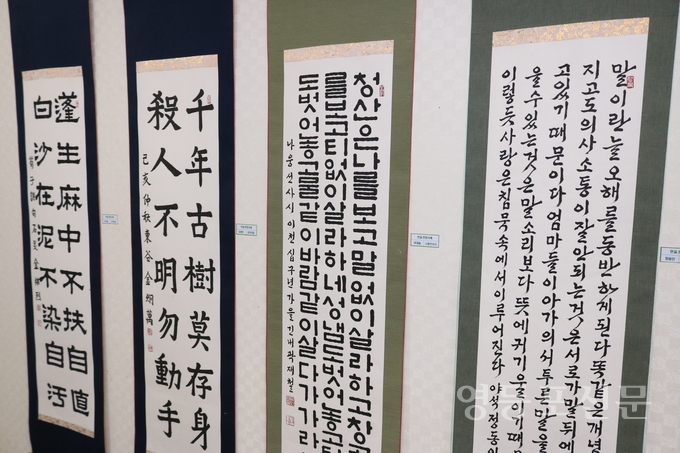 蓬生麻中不扶自直
白沙在泥不染自汚
千年古樹莫存身
殺人不明勿動手
己亥仲秋東谷金炯萬
청산은나를보고말없이살라하고창
를보고티없이살라하네성냄도벗어놓고
도벗어놓고물같이바람같이살다가가라
나옹선사시 이천십구년가을긴내곽재철
말이란늘오해를동반하게된다똑같은개념
지고도의사소통이잘안되는것은서로가말뒤에
고있기때문이다엄마들이아가의서투른말을
울수있는것은말소리보다뜻에귀기울이기때문
이렇듯사랑은침묵속에서이루어진다 야석정동
영등포신문